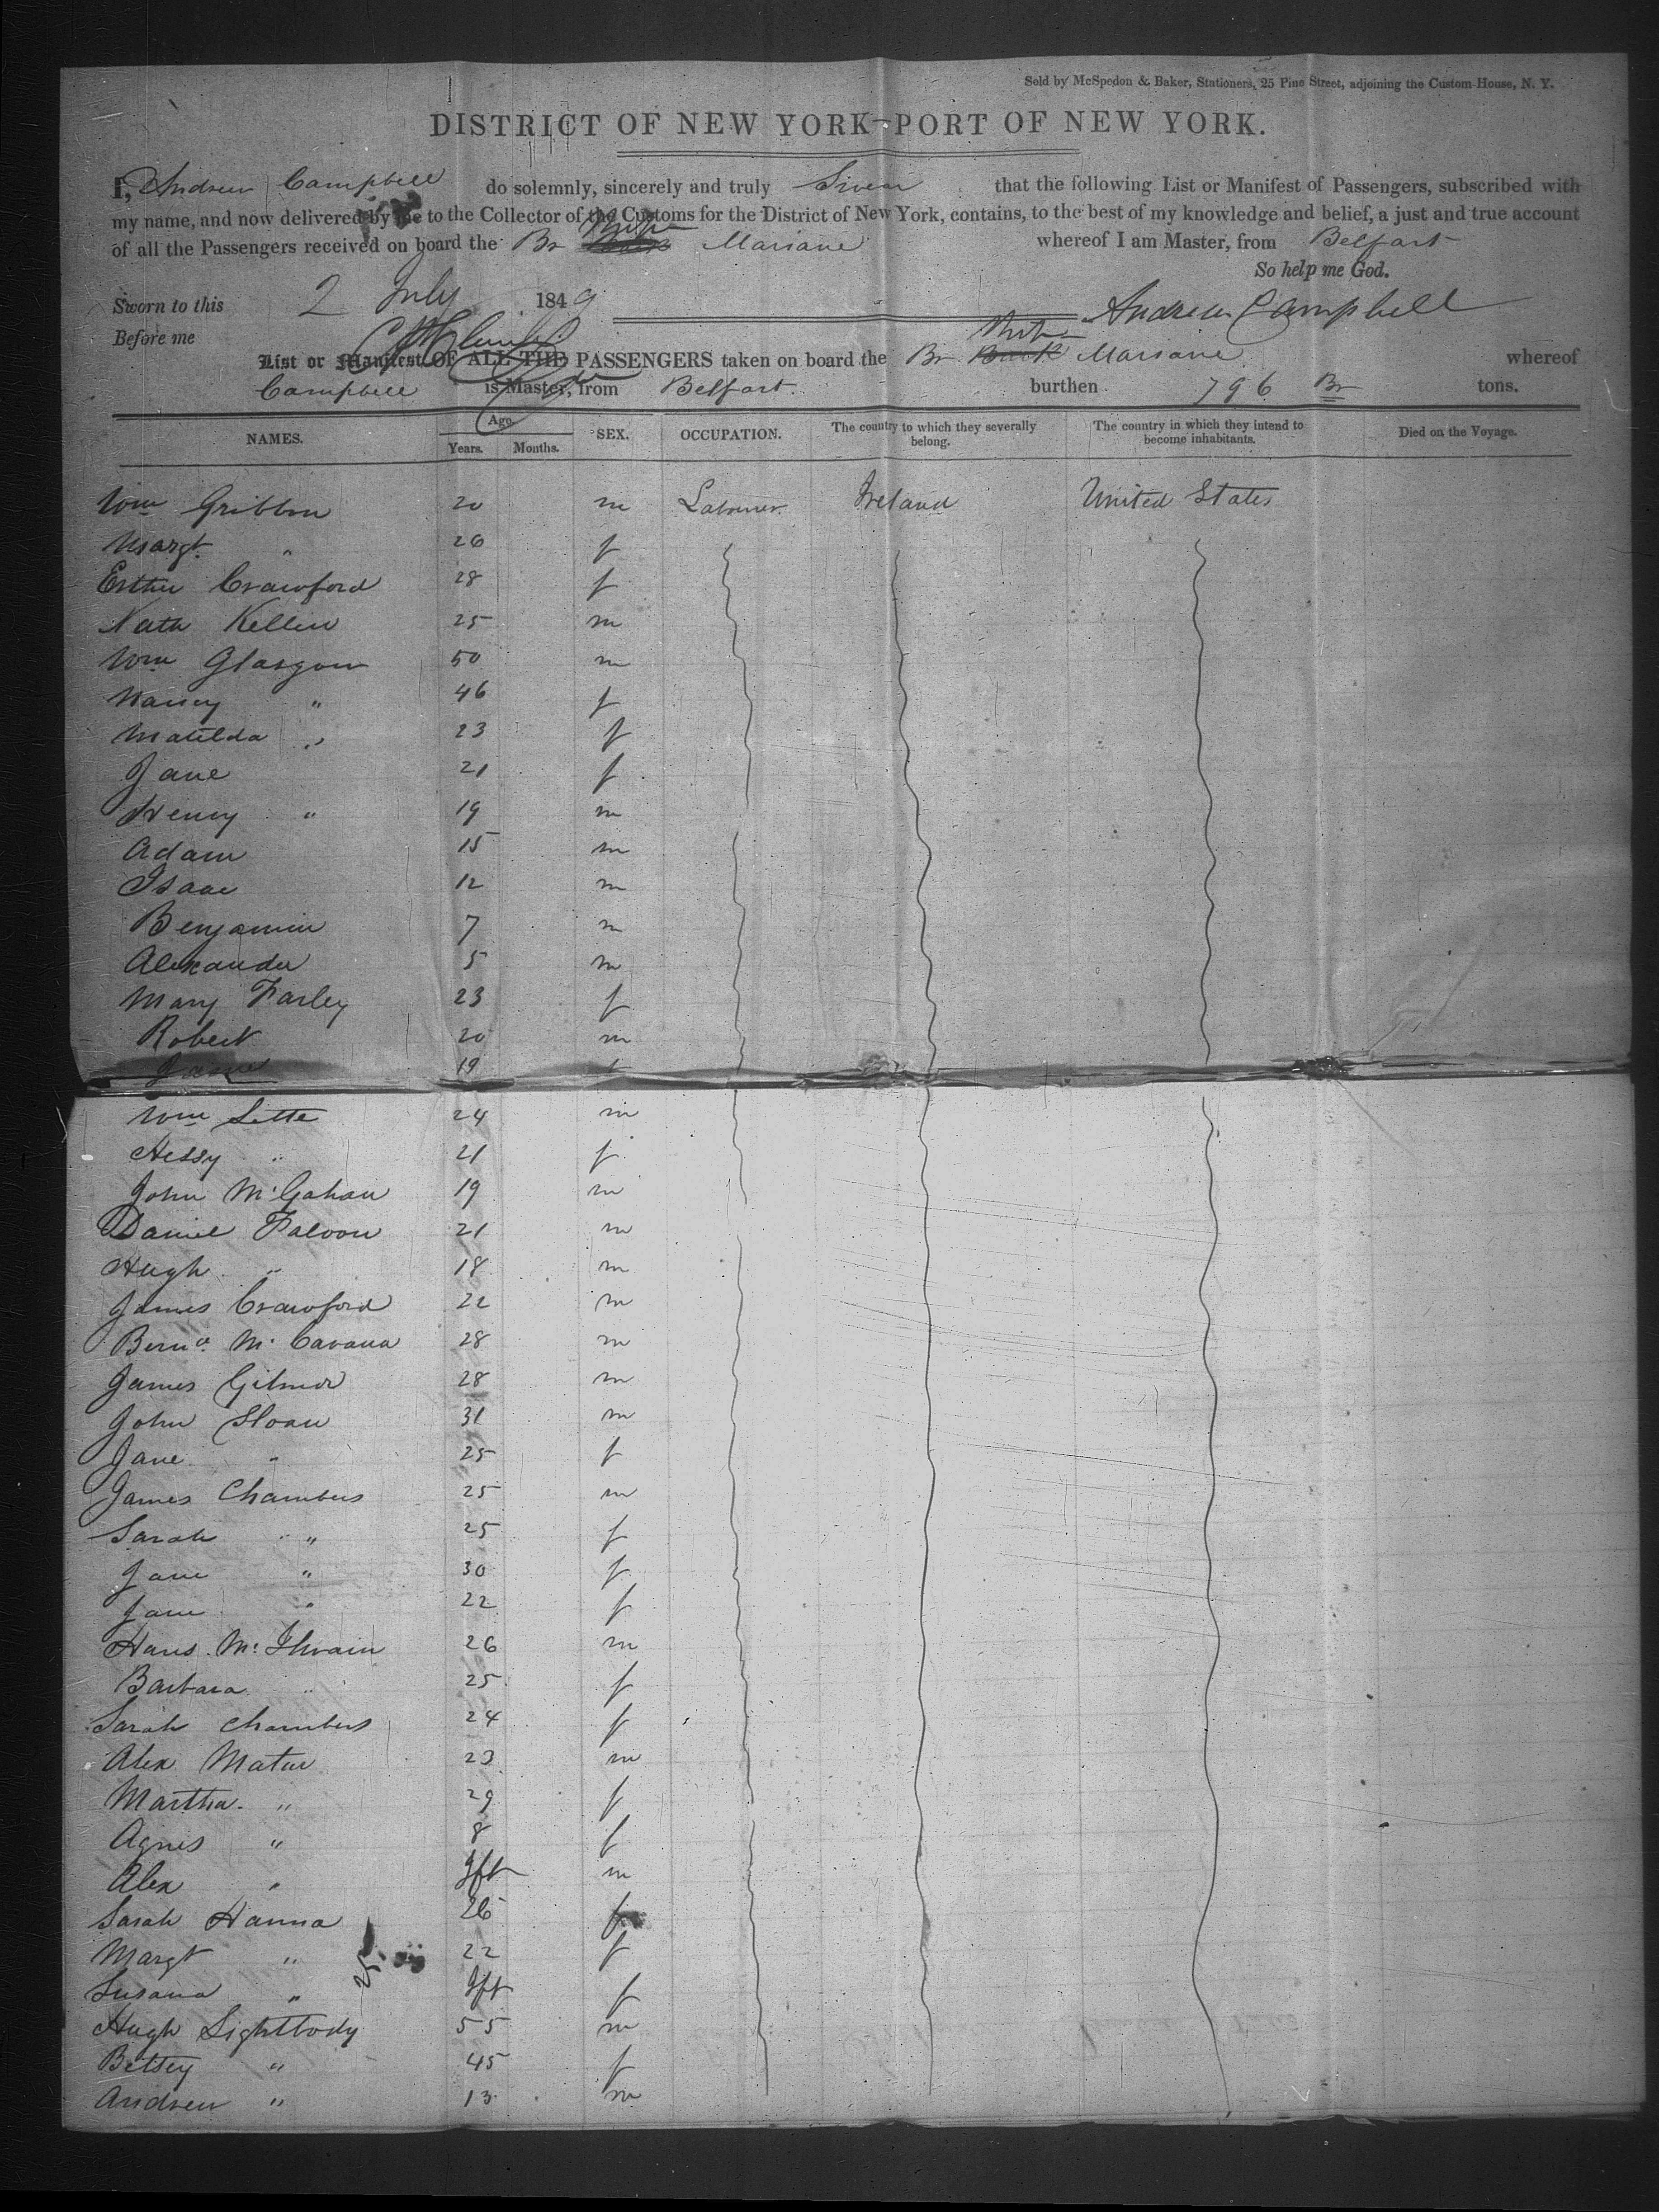 Sold by McSpedon & Baker, Stationers, 25 Pine Street, adjoining the Custom House, N. Y.
DISTRICT OF NEW YORK—PORT OF NEW YORK.
I, Andrew Campbell do solemnly, sincerely and truly Swear that the following List or Manifest of Passengers, subscribed with
my name, and now delivered by me to the Collector of the Customs for the District of New York, contains, to the best of my knowledge and belief, a just and true account
of all the Passengers received on board the Br Ship Bark Mariane whereof I am Master, from Belfast
So help me God.
Sworn to this 2 July 1849 Andrew Campbell
Before me
List or Manifest OF ALL THE PASSENGERS taken on board the Br Ship Bark Mariane whereof
Campbell is Master, from Belfast. burthen 796 Br tons.
NAMES. Age. Years. Months. SEX. OCCUPATION. The country to which they severally belong. The country in which they intend to become inhabitants. Died on the Voyage.
Wm Gribbon 20 m Labourer Ireland United States
Margt. " 26 f
Esther Crawford 28 f
Nath 25 m
Wm Glasgow 50 m
Nancy " 46 f
Matilda " 23 f
Jane 21 f
Henry " 19 m
Adam 15 m
Isaac 12 m
Benjamin 7 m
Alexander 5 m
Mary Farley 23 f
Robert 20 m
19 f
Wm 24 m
Hessy " 21 f
John McGahan 19 m
Daniel Faloon 21 m
Hugh " 18 m
James Crawford 22 m
Bernd. Mc Cavana 28 m
James Gilmor 28 m
John Sloan 31 m
Jane " 25 f
James Chambers 25 m
Sarah " 25 f
Jane " 30 f
Jane " 22 f
Hans McIlwain 26 m
Barbara " 25 f
Sarah Chambers 24 f
Alex 23 m
Martha " 29 f
Agnes " 8 f
Alex " Ift m
Sarah Hanna 26 f
Margt " 22 f
Susana " Ift f
Hugh Lightbody 55 m
Betsey " 45 f
Andrew " 13 m